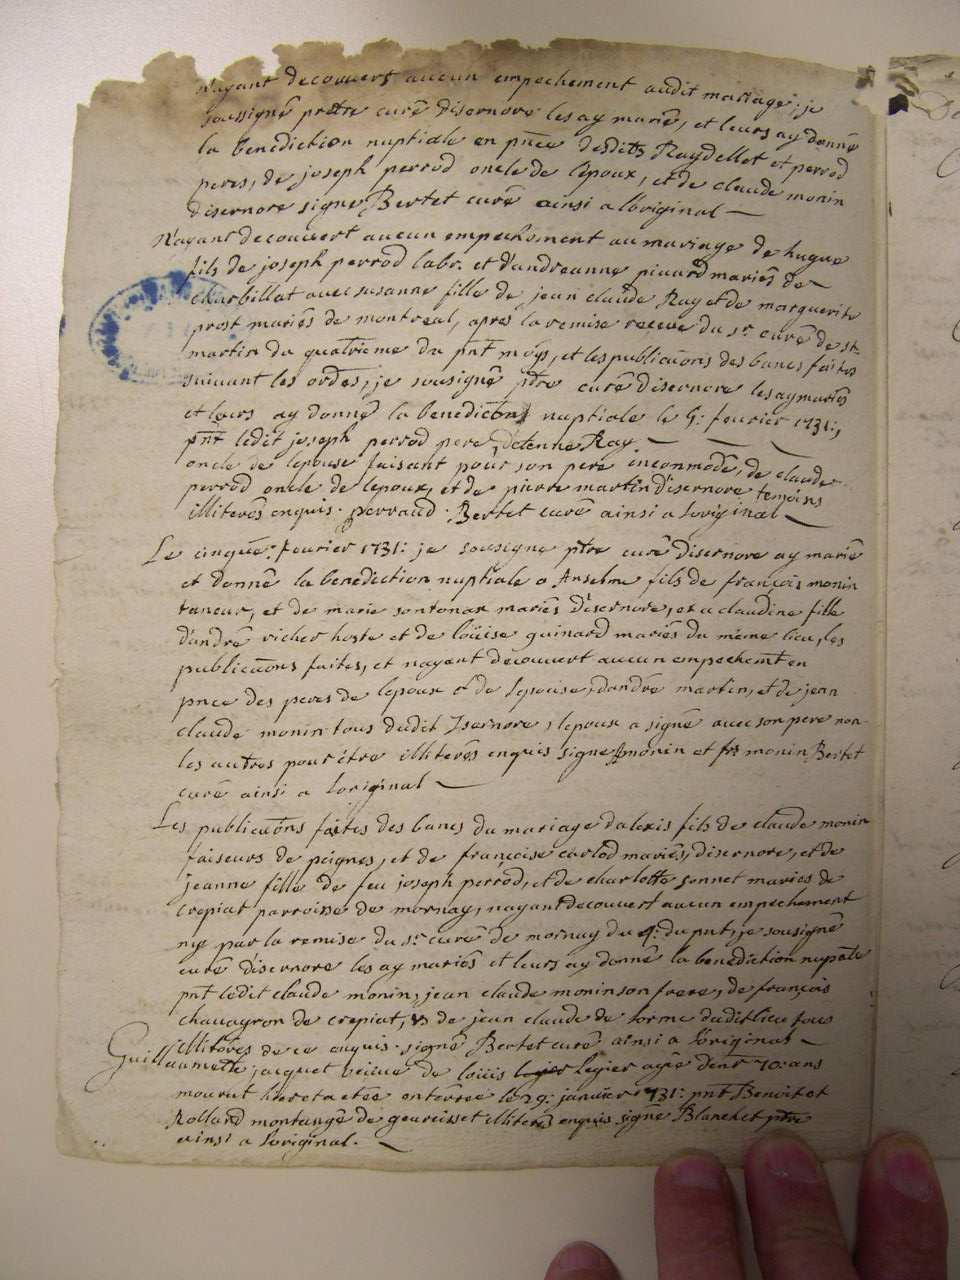 N'ayant decouvert aucun empechement audit mariage, je
soussigné prètre curé disernore les ay marié, et leurs ay donné
la benediction nuptiale en pnce desdits Raydellet et perrod
peres, de joseph perrod oncle de l'epoux, et de claude monin
disernore signé Bertet curé ainsi a l'original
N'ayant decouvert aucun empechement au mariage de hugue
fils de joseph perrod labr. et d'andreanne picard mariés de
charbillat avec susanne fille de jean claude Ray et de marguerite
prost mariés de montreal, après la remise receue du sr. curé de st
martin du quatrieme du pnt moys, et les publicaõns des bancs faites
suivant les ordes, je sousigné ptre curé disernore les ay mariés
et leurs ay donné la benedicton nuptiale le 5: fevrier 1731:,
pnt ledit joseph perrod pere, d'etienne Ray
oncle de lepouse faisant pour son pere incommodé, de claude
perrod oncle de lepoux, et de pierre martin d'isernore temoins
illiterés enquis. perraud. Bertet curé ainsi a l'original
Le cinque: fevrier 1731: je sousigné ptre curé disernore ay marié
et donné la benediction nuptiale a Anselme fils de françois monin
taneur, et de marie sontonax mariés d'isernore, et a claudine fille
d'andré richer hoste et de loüise guinard mariés du même lieu, les
publicaõns faites, et nayant decouvert aucun empechemt en
pnce des peres de lepoux & de lepouse, dandré martin, et de jean
claude monin tous dudit Isernore, lepoux a signé avec son pere non
les autres pour être illiterés enquis signé Amonin et frs monin Bertet
curé ainsi a loriginal
Les publicaõns faites des bancs du mariage dalexis fils de claude monin
faiseurs de peignes, et de françoise carlod mariés, disernore, et de
jeanne fille de feu joseph perrod, et de charlotte sonnet mariés de
crepiat parroisse de mornay, nayant decouvert aucun empechement
ny par la remise du sr. curé de mornay du 4: du pnt, je sousigné
curé disernore les ay mariés et leurs ay donné la benediction nupale
pnt ledit claude monin, jean claude monin son frere, de françois
chavagron de crepiat, & de jean claude de lorme dudit lieu tous
illiterés de ce enquis. signé Bertet curé ainsi a l'original
Guillaumette jacquet veüve de loüis Legier agée denv 70: ans
mourut hier et a etée enterrée le 29: janvier 1731: pnt Benoit et
Rolland montangé de geovreisset illiterés enquis signé Blanchet ptre
ainsi a l'original.